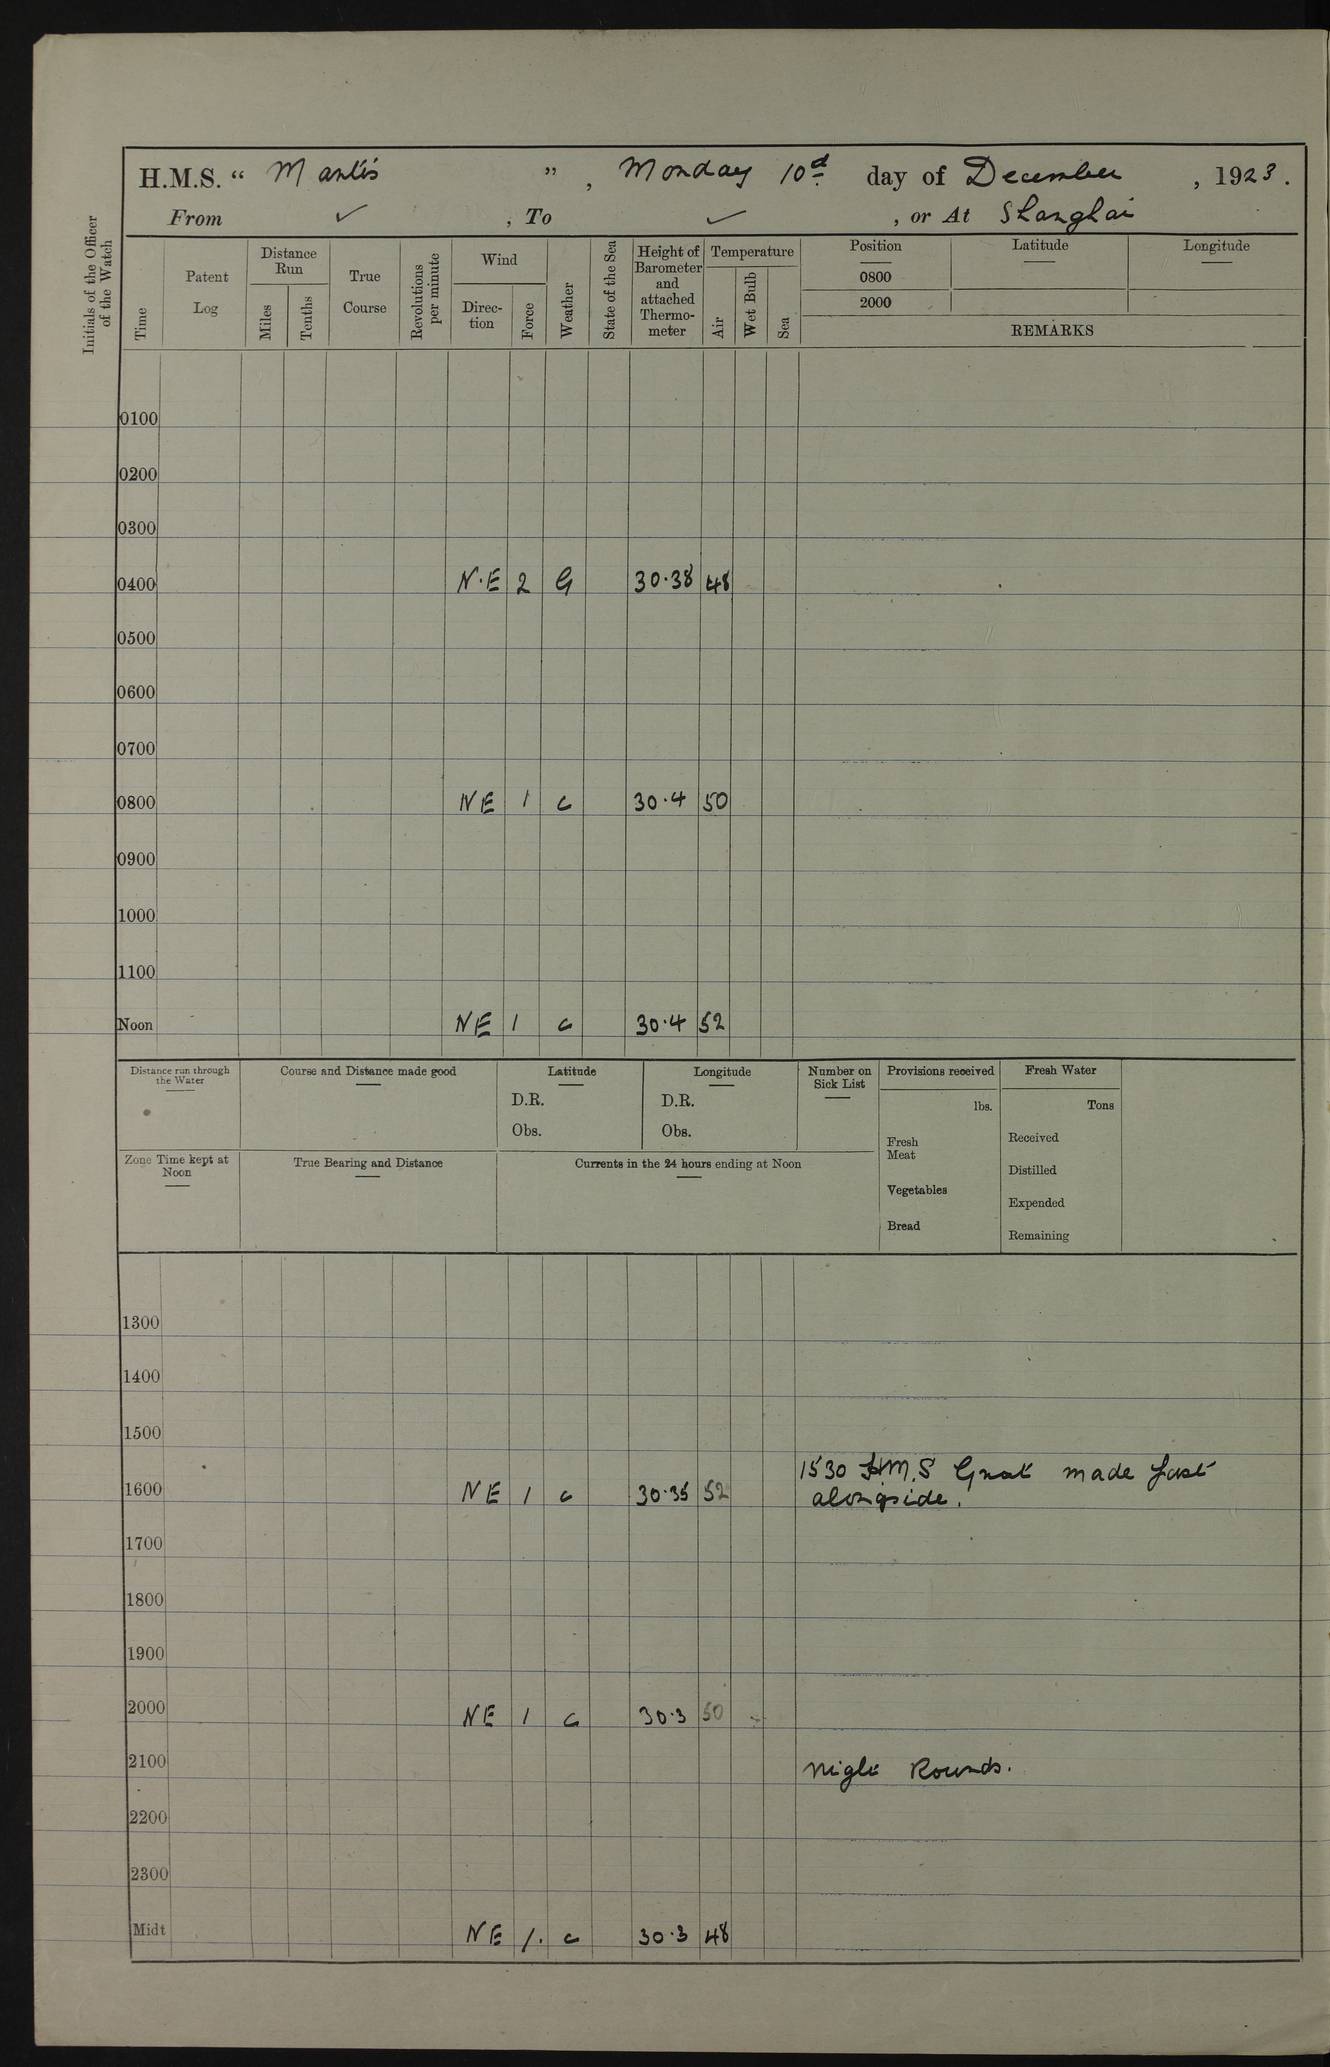 H.M.S. “ Mantis ”, Monday 10d day of December, 1923.
From ✓, To ✓, or At Shanghai
Initials of the Officer of the Watch
Time
Patent Log
Distance Run
Miles
Tenths
True Course
Revolutions per minute
Wind
Direc-tion
Force
Weather
State of the Sea
Height of Barometer and attached Thermo-meter
Temperature
Air
Wet Bulb
Sea
Position Latitude Longitude
0800
2000
REMARKS
0100
0200
0300
0400 N.E 2 G 30.38 48
0500
0600
0700
0800 NE 1 c 30.4 50
0900
1000
1100
Noon NE 1 c 30.4 52
Distance run through the Water
Course and Distance made good
Latitude
D.R.
Obs.
Longitude
D.R.
Obs.
Number on Sick List
Provisions received
lbs.
Fresh Meat
Vegetables
Bread
Fresh Water
Tons
Received
Distilled
Expended
Remaining
Zone Time kept at Noon
True Bearing and Distance
Currents in the 24 hours ending at Noon
1300
1400
1500
1530 H.M.S Gnat made fast
1600 NE 1 c 30.35 52 alongside.
1700
1800
1900
2000 NE 1 c 30.3 50
2100 Night Rounds.
2200
2300
Midt NE 1. c 30.3 48